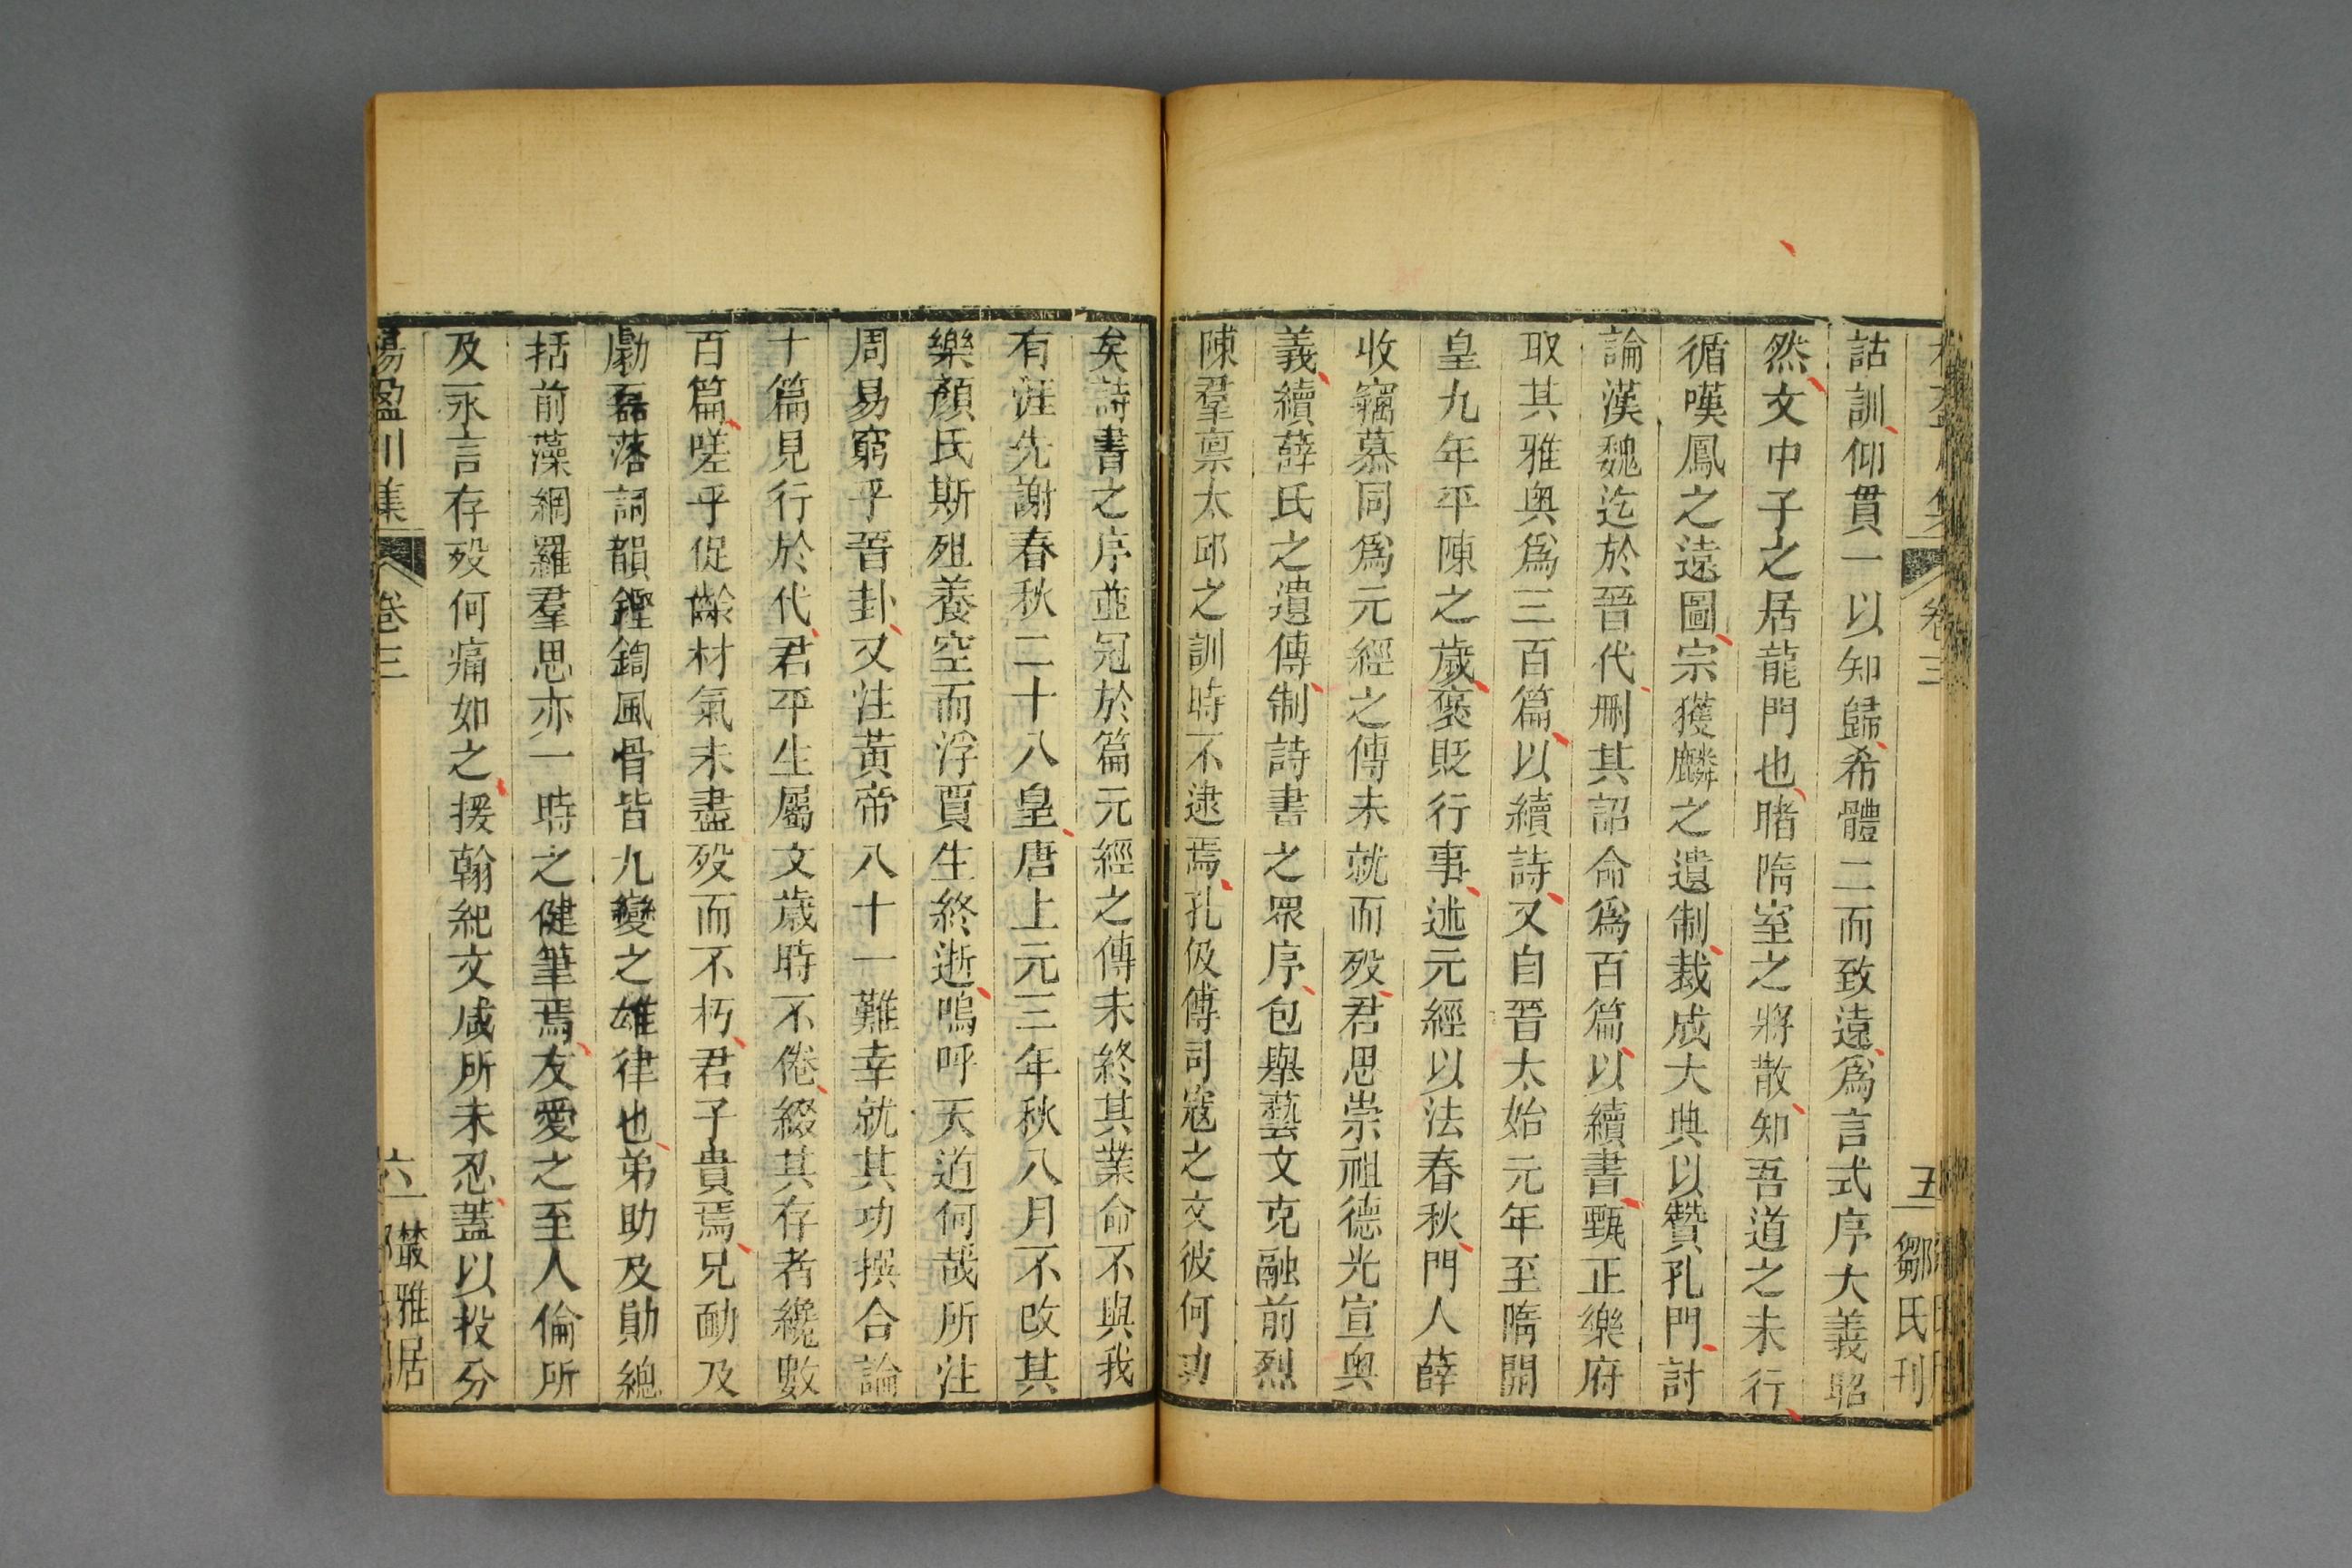 卷三 五 鄒氏刊
詁訓仰貫一以知歸希體二而致遠爲言式序大義昭
然文中子之居龍門也睹隋室之將散知吾道之未行
循嘆鳳之遠圖宗獲麟之遺制裁成大典以贊孔門討
論漢魏迄於晉代刪其詔命爲百篇以續書甄正樂府
取其雅奧爲三百篇以續詩又自晉太始元年至隋開
皇九年平陳之歲褒貶行事述元經以法春秋門人薛
收竊慕同爲元經之傳未就而歿君思崇祖德光宣奧
義續薛氏之遺傳制詩書之眾序包舉藝文克融前烈
陳羣禀太邱之訓時不逮焉孔伋傳司寇之文彼何功
矣詩書之序並冠於篇元經之傳未終其業命不與我
有涯先謝春秋二十八皇唐上元三年秋八月不改其
樂顏氏斯殂養空而浮賈生終逝嗚呼天道何哉所注
周易窮乎晉卦又注黃帝八十一難幸就其功撰合論
十篇見行於代君平生屬文歲時不倦綴其存者纔數
百篇嗟乎促齡材氣未盡歿而不朽君子貴焉兄勔及
勮磊落詞韻鏗鍧風骨皆九變之雄律也弟助及勛總
括前藻網羅羣思亦一時之健筆焉友愛之至人倫所
及永言存歿何痛如之援翰紀文咸所未忍蓋以投分
楊盈川集 卷三 六 叢雅居